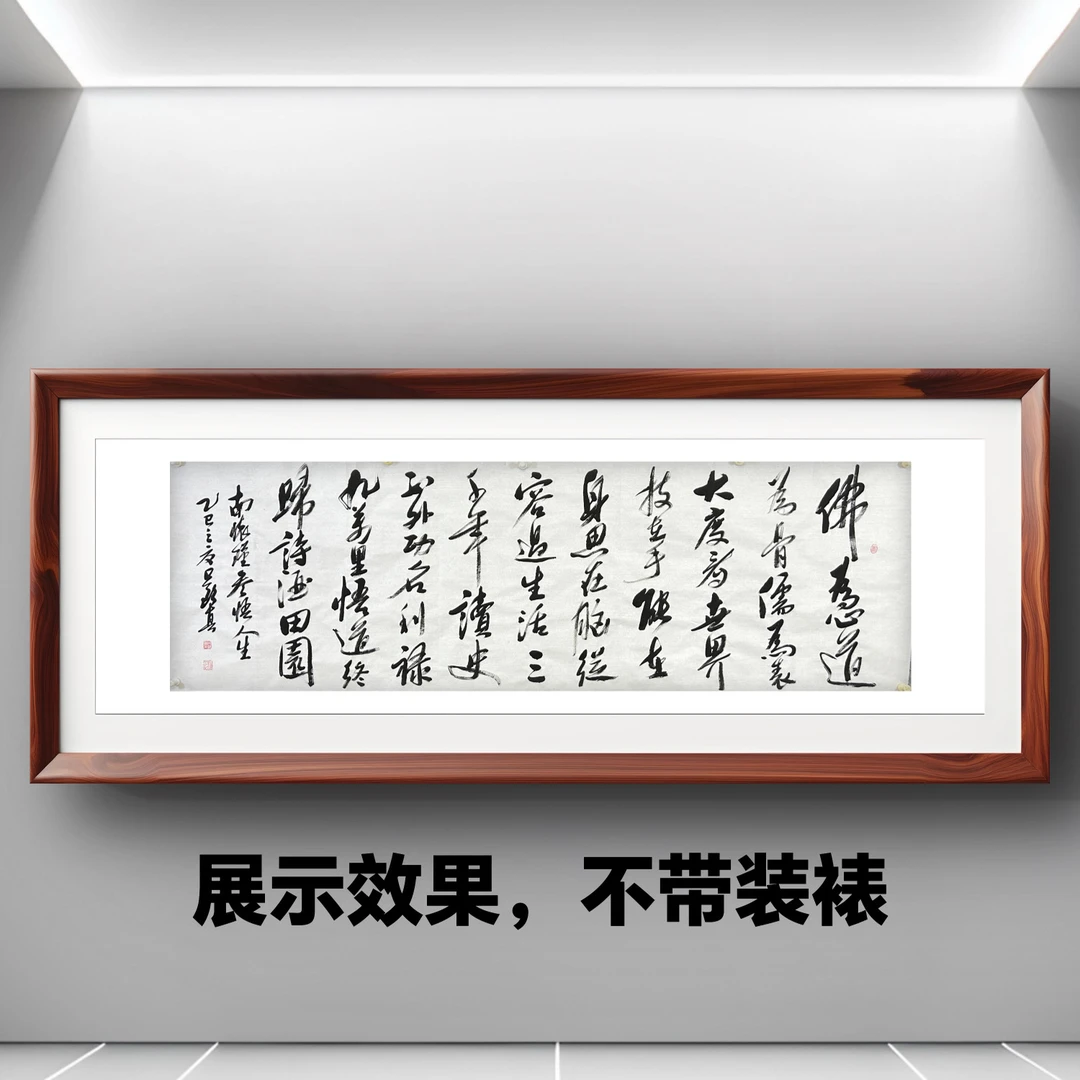 佛為心道
為骨儒為表
大度看世界
技在手能在
身思在腦從
容過生活三
千年讀史
不外功名利祿
九萬里悟道終
歸詩酒田園
南懷瑾參悟人生
乙巳之夏
展示效果，不带装裱